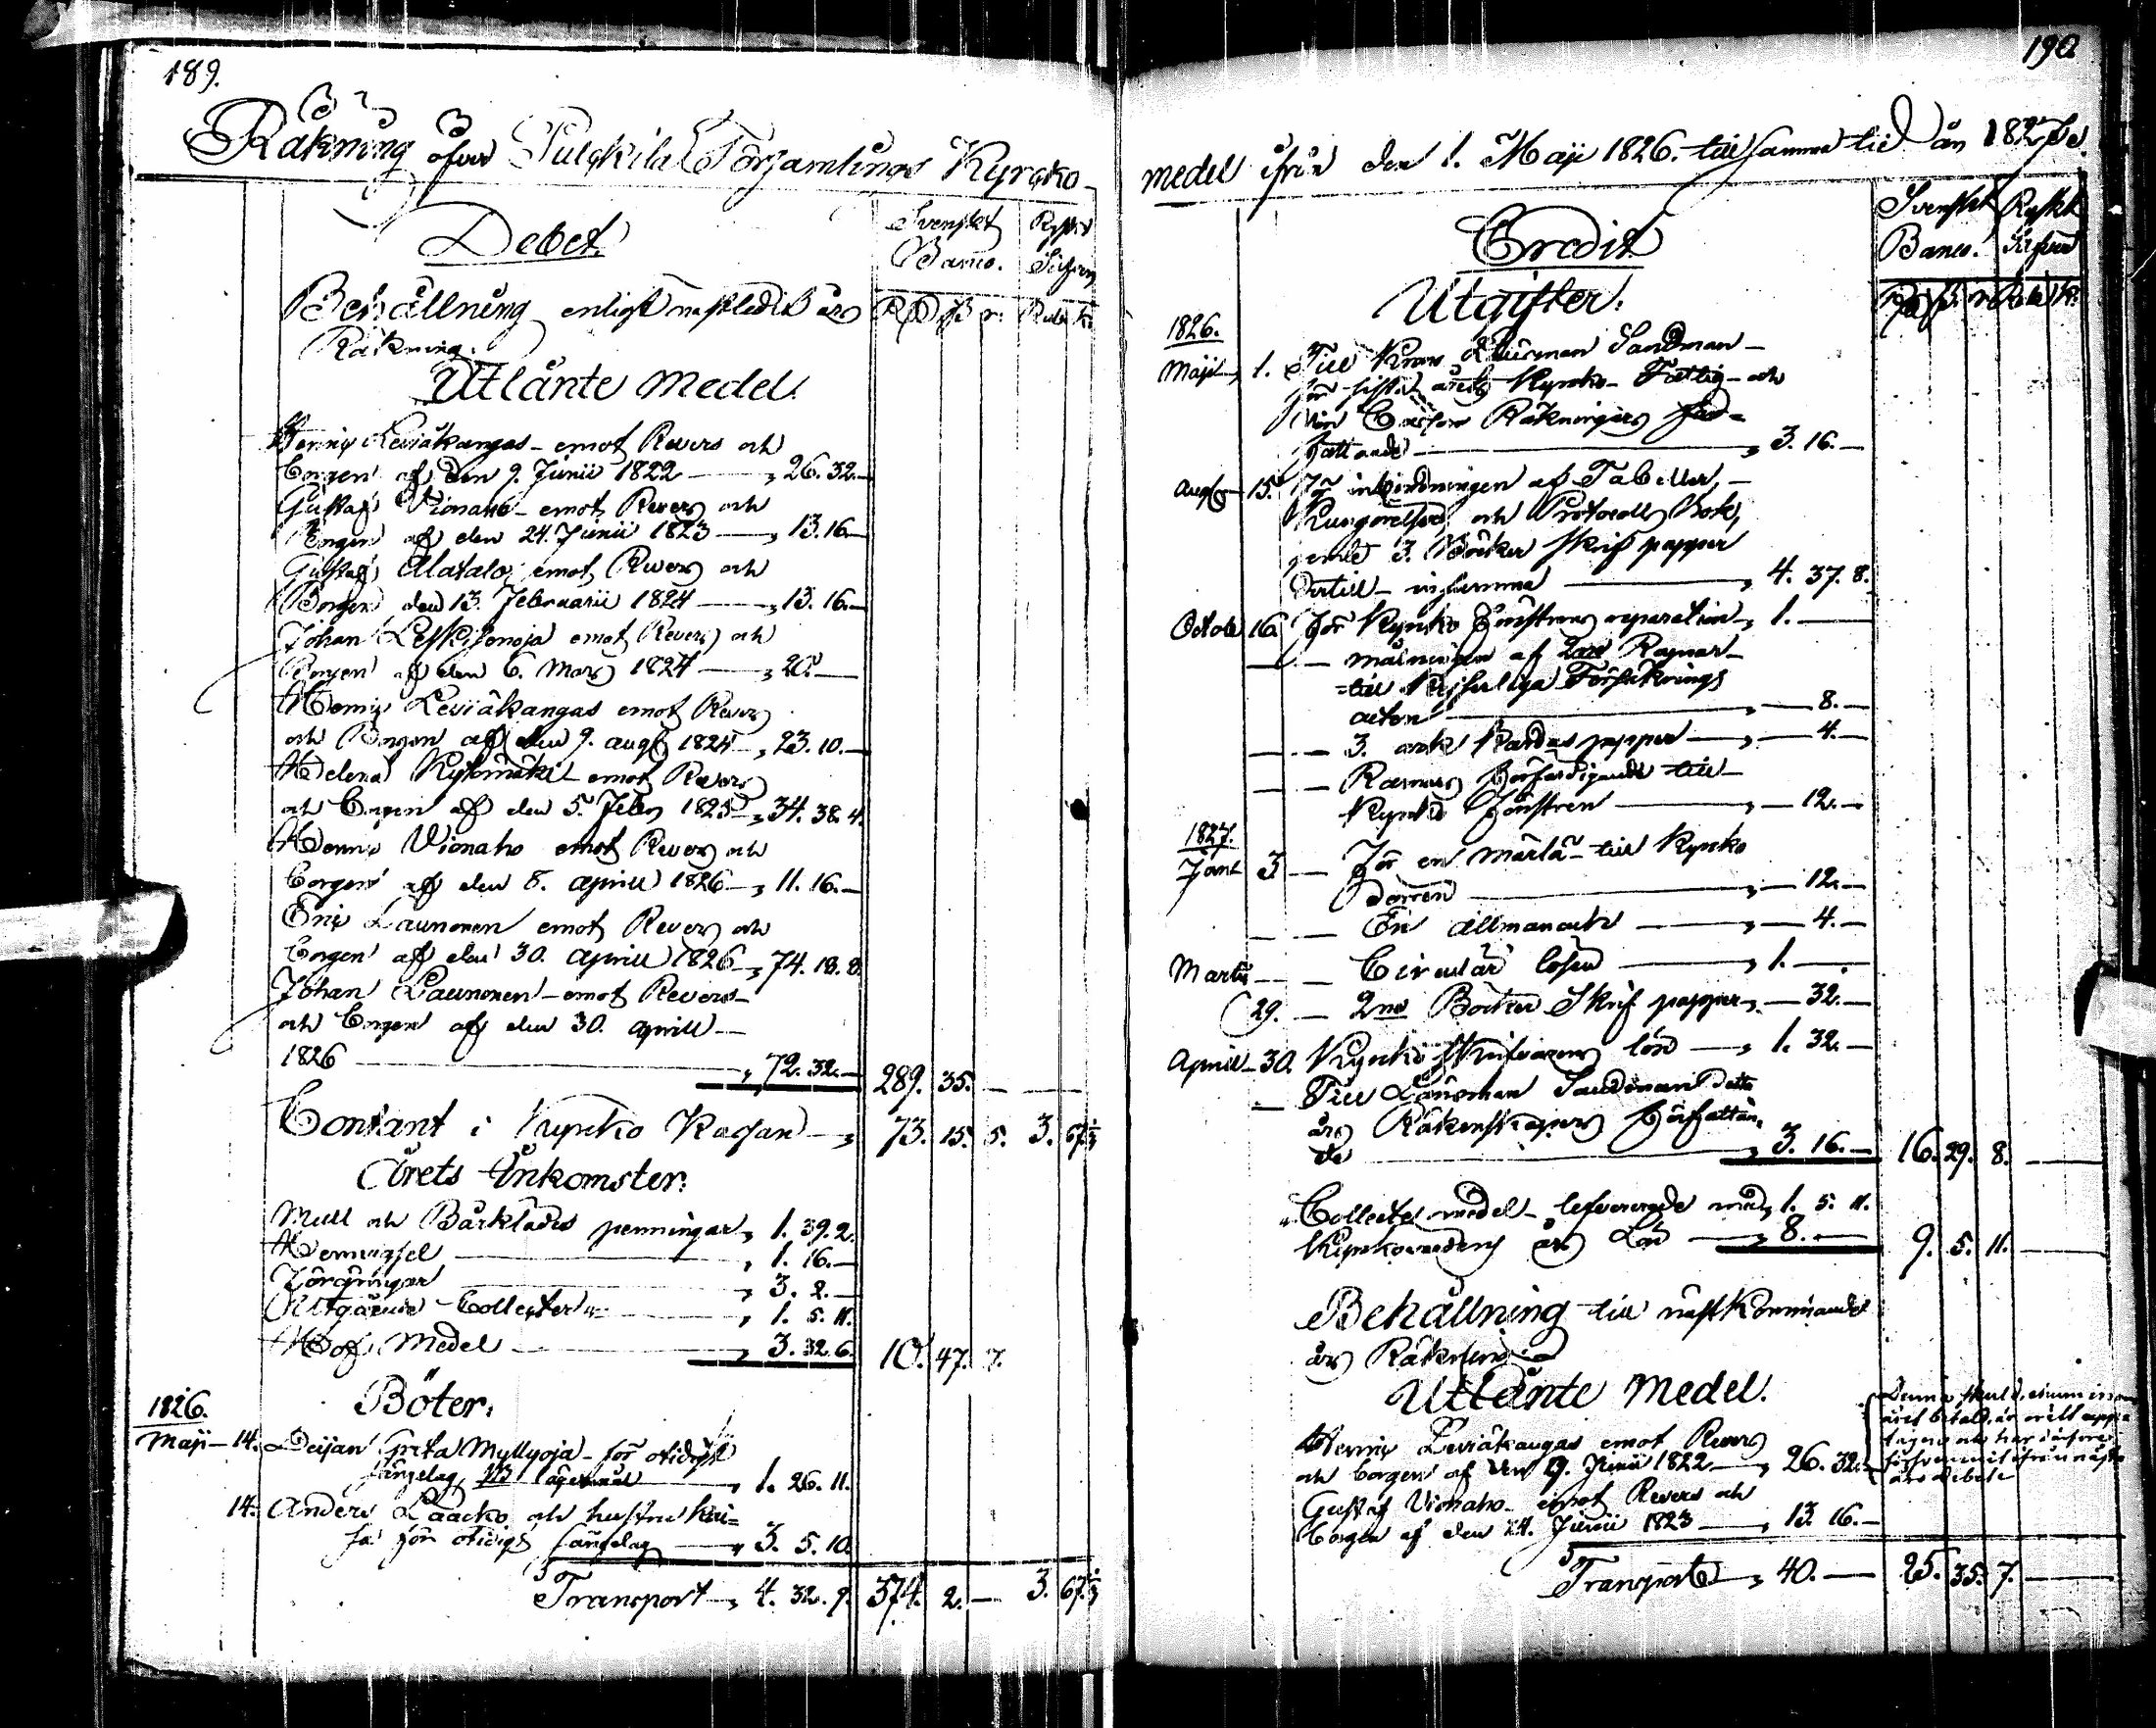 189.
Räkning öfver Pulckila Församlings Kyrcko-
Debet.
Svenskt Banco.
Ryskt Silfver
Behållning enligt nästledit års
Räkning.
RD ß r: Rub: k:
Utlånte Medel.
Henric Leviäkangas emot Revers och
Borgen af den 9. Junii 1822 — „ 26. 32. —
Gustaf Vionaho emot Revers och
Borgen af den 24. Junii 1823 — „ 13. 16. —
Gustaf Alatalo emot Revers och
Borgen den 13. Februarii 1824 — „ 13. 16. —
Johan Leskiſenoja emot Revers och
Borgen af den 6. Mars 1824 — „ 20. —
Henric Leviäkangas emot Revers
och Borgen af den 9. aug: 1824 — „ 23. 10. —
Helena Kylmäki emot Revers
och Borgen af den 5. Febr 1825 — „ 34. 38. 4.
Henric Vionaho emot Revers och
Borgen af den 8. April 1826 — „ 11. 16. —
Eric Launonen emot Revers och
Borgen af den 30. April 1826 — „ 74. 18. 8.
Johan Launonen emot Revers
och Borgen af den 30. April —
1826 — „ 72. 32. — 289. 35. —
Contant i Kyrcko Kassan — „ 73. 15. 5. 3. 67
Årets Inkomster.
Mull och Bårklädes penningar „ 1. 39. 2.
— „ 1. 16. —
— „ 3. 2. —
Utgående Collecter — „ 1. 5. 11.
Håf Medel — „ 3. 32. 6. 10. 47. 7.
Böter.
1826.
Maji — 14. Greta Myllyoja för otidigt
sängelag — „ 1. 26. 11.
14. Anders Laacko och hustru Kai=
sa för otidigt sängelag — „ 3. 5. 10.
Transport — „ 4. 32. 9. 374. 2. — 3. 67
190
medel ifrån den 1. Maji 1826. till samma tid år 1827.
Credit.
Svenskt Banco.
Ryskt Silfver
Utgifter.
1826.
Maji — 1. Till Länsman Sandman —
för sista årets Kyrcko- Fattig- och
Räkningars för=
fattande — „ 3. 16. —
Aug: — 15. För inbindningen af Tabeller, —
och Protocolls Bok,
jemte 3. Böcker Skrif papper
dertill — „ 4. 37. 8.
Octob: 16. För Kyrcko Fönstrens reparation „ 1. —
— — målningen af 2ne Ramar
till Kejserliga Försäkrings
acten — „ — 8. —
— — 3. ark Kardus papper — „ — 4. —
— — Ramars förfärdigande till
Kyrcko Fönstren — „ — 12. —
1827.
Jan: 3 — För en märla till Kyrcko
Dörren — „ — 12. —
— — En Allmanach — „ — 4. —
Martii — — Circulär lösen — „ 1. —
29. — 2ne Böcker Skrif papper „ — 32. —
April — 30. Kyrcko Skrifvarens lön — „ 1. 32. —
— Till Länsman Sandman detta
års Räkenskapers författan=
de — „ 3. 16. — 16. 29. 8. —
Collecte medel levererade med „ 1. 5. 11.
Kyrckovärdens års Lön — „ 8. — 9. 5. 11. —
Behållning till nästkommande
års Räkning
Utlånte Medel.
Henric Leviäkangas emot Revers
och Borgen af den 9. Junii 1822 — „ 26. 32.
Gustaf Vionaho emot Revers och
Borgen af den 24. Junii 1823 — „ 13. 16. —
Transport — „ 40. — 25. 35. 7. —